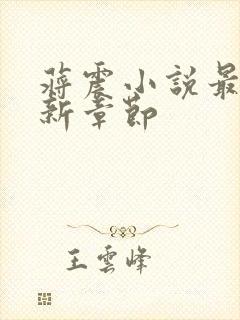 蔣震小說最
新章節
王雲峰